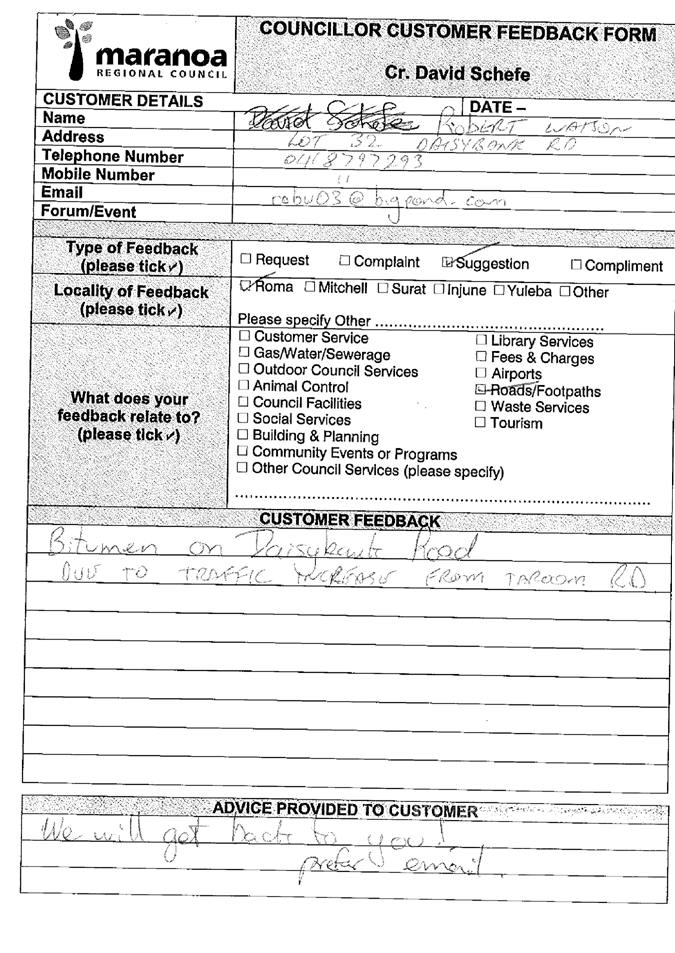 maranoa
REGIONAL COUNCIL
COUNCILLOR CUSTOMER FEEDBACK FORM
Cr. David Schefe
CUSTOMER DETAILS
DATE –
Name David Schefe ROBERT WATSON
Address LOT 32 DAISYBANK RD
Telephone Number 0418797293
Mobile Number 11
Email @bigpond.com
Forum/Event
Type of Feedback
(please tick✓)
☐ Request ☐ Complaint ☑ Suggestion ☐ Compliment
Locality of Feedback
(please tick✓)
☑ Roma ☐ Mitchell ☐ Surat ☐ Injune ☐ Yuleba ☐ Other
Please specify Other ..................................................
What does your
feedback relate to?
(please tick✓)
☐ Customer Service
☐ Gas/Water/Sewerage
☐ Outdoor Council Services
☐ Animal Control
☐ Council Facilities
☐ Social Services
☐ Building & Planning
☐ Community Events or Programs
☐ Other Council Services (please specify)
☐ Library Services
☐ Fees & Charges
☐ Airports
☑ Roads/Footpaths
☐ Waste Services
☐ Tourism
CUSTOMER FEEDBACK
Bitumen on Daisybank Road
DUE TO TRAFFIC INCREASE FROM TAROOM RD
ADVICE PROVIDED TO CUSTOMER
We will get back to you!
prefer email.